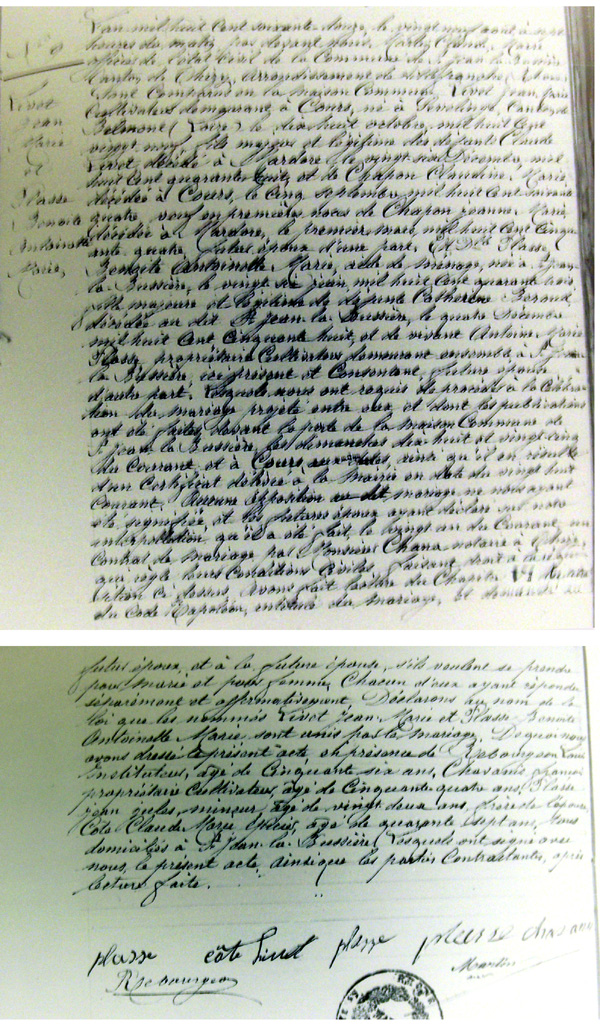 N° 9
Livet
Jean
Marie
et
Plasse
Benoite
Antoinette
Marie,
L'an mil huit cent soixante douze, le vingt neuf août à sept
heures du matin, par devant nous, Martin Claude Marie
officier de l'état civil de la Commune de St Jean la Bussière
Canton de Thizy, arrondissement de Villefranche (Rhône)
sont Comparus en la maison Commune, Livet Jean Marie
Cultivateur demeurant à Cours, né à Sevelinges, Canton de
Belmont (Loire) le dix huit octobre, mil huit cent
vingt neuf, fils majeur et légitime des défunts Claude
Livet décédé à Mardore, le vingt six Décembre, mil
huit cent quarante huit, et de Chapon Claudine Marie
décédée à Cours, le cinq septembre mil huit cent soixante
quatre, veuf en premières noces de Chapon Jeanne Marie,
décédée à Mardore, le premier mars, mil huit cent cinqu-
ante quatre, futur époux d'une part. Et Dlle Plasse
Benoite Antoinette Marie, aide de ménage, née à St Jean
la Bussière, le vingt six juin, mil huit cent quarante trois
fille majeure et légitime de défunte Catherine
décédée au dit St Jean la Bussière, le quatre
mil huit Cent Cinquante huit, et de vivant Antoine Marie
Plasse, propriétaire Cultivateur demeurant ensemble à St Jean
la Bussière, ici présent et Consentant, future épouse
d'autre part. Lesquels nous ont requis de procéder à la Célébra-
tion du mariage projeté entre eux, et dont les publications
ont été faites devant la porte de la maison Commune de
St Jean la Bussière, les dimanches dix huit et vingt cinq
du Courant, et à Cours, ainsi qu'il en résulte
d'un Certificat délivré à la mairie en date du vingt huit
Courant. Aucune opposition au dit mariage ne nous ayant
été signifiée, et les futurs époux ayant déclaré sur notre
interpellation qu'il a été fait, le vingt un du Courant, un
Contrat de mariage par Monsieur Chana notaire à Thizy,
qui règle leurs Conditions Civiles, faisant droit à la réqui-
sition ci dessus, avons fait lecture du Chapitre VI
du Code Napoléon, intitulé du mariage, et demandé au
futur époux, et à la future épouse, s'ils veulent se prendre
pour mari et pour femme, Chacun d'eux ayant répondu
séparément et affirmativement, Déclarons au nom de la
loi que les nommés Livet Jean Marie et Plasse Benoite
Antoinette Marie sont unis par le mariage. De quoi nous
avons dressé le présent acte en présence de Rebourgeon Louis
Instituteur, âgé de Cinquante six ans, Chavanis François
propriétaire Cultivateur, âgé de Cinquante quatre ans, Plasse
Jean Jules, mineur, âgé de vingt deux ans, frère de l'épouse
Côte Claude Marie, âgé de quarante sept ans, tous
domiciliés à St Jean la Bussière, lesquels ont signé avec
nous, le présent acte, ainsi que les parties Contractantes, après
lecture faite.
plasse côte Livet plasse plasse
Rebourgeon Martin